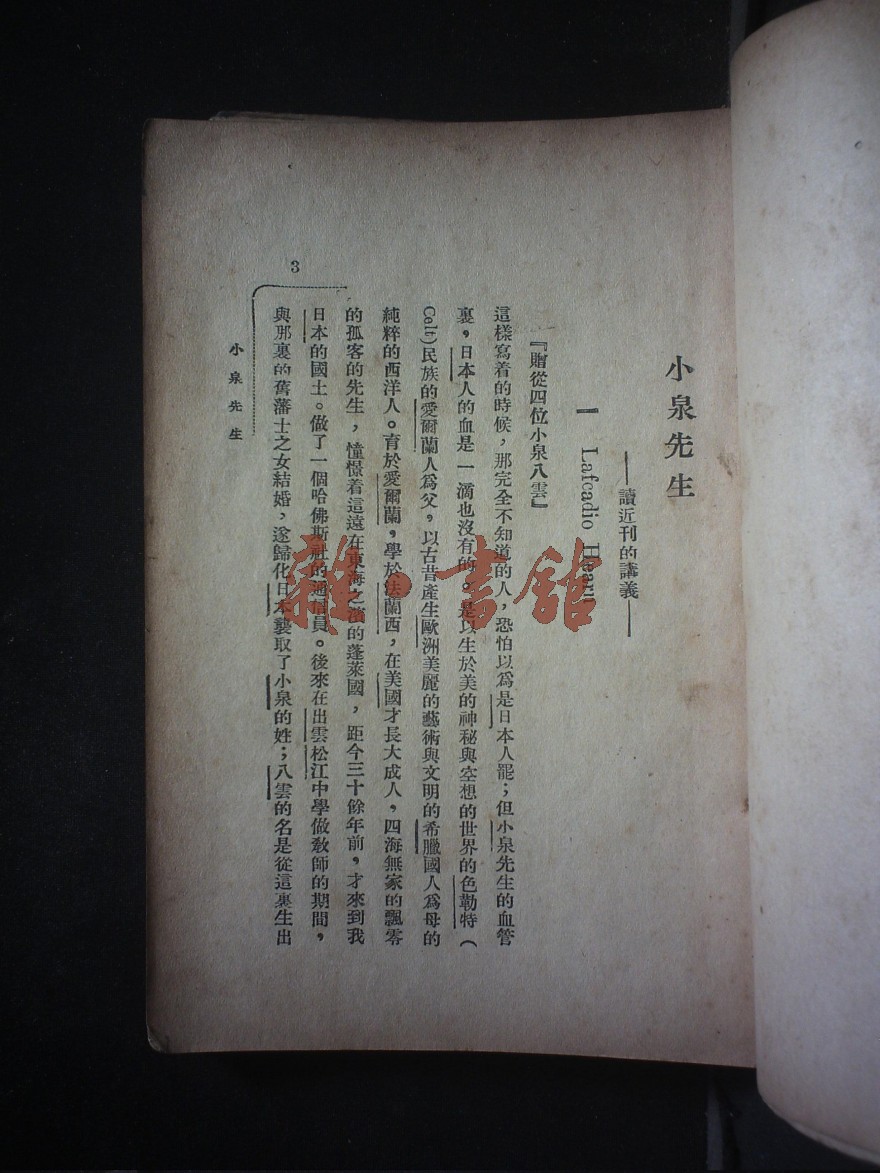 小泉先生
——讀近刊的講義——
一 Lafcadio Hearn
『贈從四位小泉八雲』
這樣寫着的時候，那完全不知道的人，恐怕以爲是日本人罷；但小泉先生的血管
裏，日本人的血是一滴也沒有的。是以生於美的神秘與空想的世界的色勒特（
Celt)民族的愛爾蘭人爲父，以古昔產生歐洲美麗的藝術與文明的希臘國人爲母的
純粹的西洋人。育於愛爾蘭，學於法蘭西，在美國才長大成人，四海無家的飄零
的孤客的先生，憧憬着這遠在東海之濱的蓬萊國，距今三十餘年前，才來到我
日本的國土。做了一個哈佛斯社的通信員。後來在出雲松江中學做敎師的期間，
與那裏的舊藩士之女結婚，遂歸化日本襲取了小泉的姓；八雲的名是從這裏生出
3
小泉先生
雜·書館